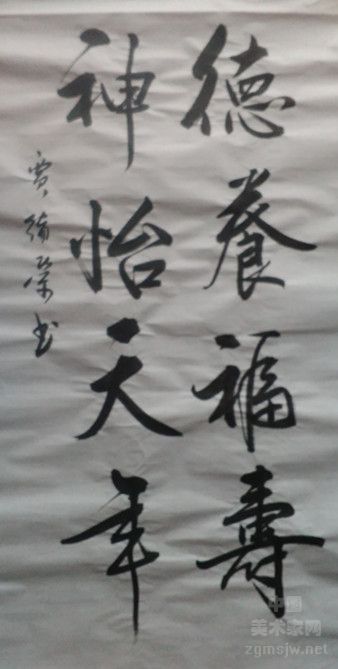 德養福壽
神怡天年
中国
美术家网
zgmsjw.net